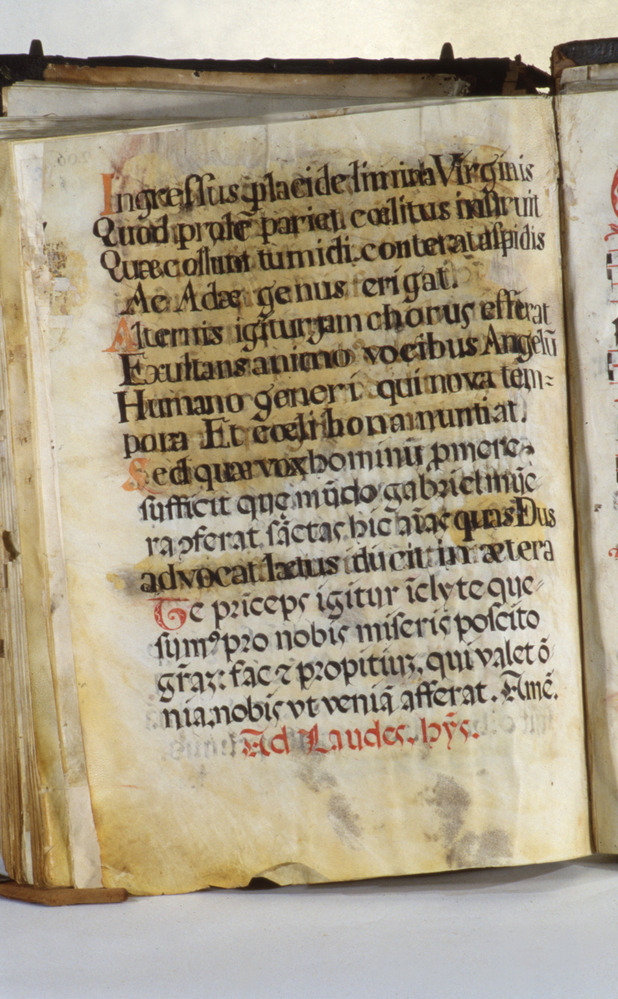 Ingressus placide limina Virginis
Quod prolē pariet cœlitus instruit
Quæ collum tumidi conterat aspidis
Ac Adæ genus erigat.
Alternis igitur jam chorus efferat
Exultans animo vocibus Angelū
Humano generi qui nova tem=
pora Et cœli bona nuntiat.
Sed quæ vox hominū pmere-
sufficit quę mūdo gabriel
ra ꝓferat sāctas hic aīas quas Dus
advocat lætus ducit in ætera
Te prīceps igitur īclyte que-
sumꝰ pro nobis miseris poscito
grāz: fac ⁊ propitiuz, qui valet ō
nia, nobis vt veniā afferat. Amē.
Ad Laudes. hỹs.